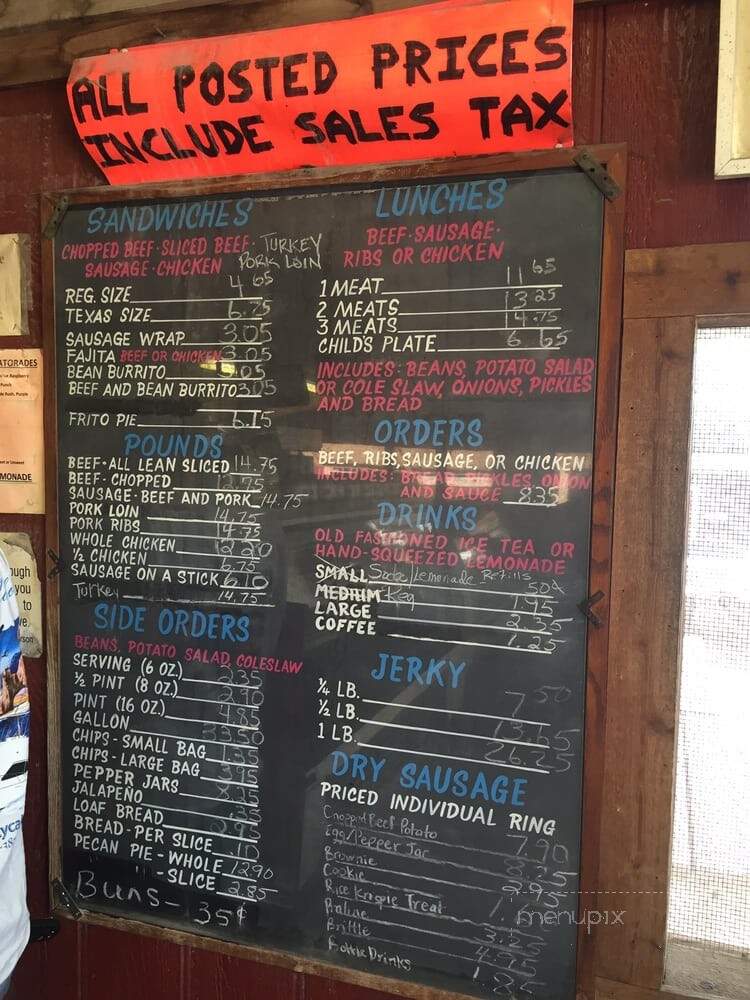 ALL POSTED PRICES
INCLUDE SALES TAX
SANDWICHES
CHOPPED BEEF · SLICED BEEF · TURKEY
SAUSAGE · CHICKEN PORK LOIN
REG. SIZE 4.65
TEXAS SIZE 6.75
SAUSAGE WRAP 3.05
FAJITA BEEF OR CHICKEN 3.05
BEAN BURRITO 3.05
BEEF AND BEAN BURRITO 3.05
FRITO PIE 6.15
POUNDS
BEEF - ALL LEAN SLICED 14.75
BEEF - CHOPPED 12.75
SAUSAGE - BEEF AND PORK 14.75
PORK LOIN 14.75
PORK RIBS 14.75
WHOLE CHICKEN 12.20
½ CHICKEN 6.75
SAUSAGE ON A STICK 6.10
Turkey 14.75
SIDE ORDERS
BEANS, POTATO SALAD, COLESLAW
SERVING (6 OZ.) 2.35
½ PINT (8 OZ.) 2.90
PINT (16 OZ.) 4.85
GALLON
CHIPS - SMALL BAG
CHIPS - LARGE BAG
PEPPER JARS
JALAPEÑO
LOAF BREAD
BREAD - PER SLICE .10
PECAN PIE - WHOLE 12.90
" " - SLICE 2.85
Buns - 35¢
LUNCHES
BEEF · SAUSAGE ·
RIBS OR CHICKEN
1 MEAT 11.65
2 MEATS 13.25
3 MEATS 14.75
CHILD'S PLATE 6.65
INCLUDES: BEANS, POTATO SALAD
OR COLE SLAW, ONIONS, PICKLES
AND BREAD
ORDERS
BEEF, RIBS, SAUSAGE, OR CHICKEN
INCLUDES: BREAD, PICKLES, ONION
AND SAUCE 8.35
DRINKS
OLD FASHIONED ICE TEA OR
HAND-SQUEEZED LEMONADE
SMALL Soda/Lemonade Refills 50¢
MEDIUM Reg 1.95
LARGE 2.35
COFFEE 1.25
JERKY
¼ LB. 7.50
½ LB. 13.65
1 LB. 26.25
DRY SAUSAGE
PRICED INDIVIDUAL RING
Chopped Beef Potato 7.90
Egg/Pepper Jar 8.25
Brownie 2.95
Cookie
Rice Krispie Treat
Praline 3.25
Brittle 4.95
Bottle Drinks 1.85
ATORADES
Punch
MONADE
ough
you
to
ve.
menupix